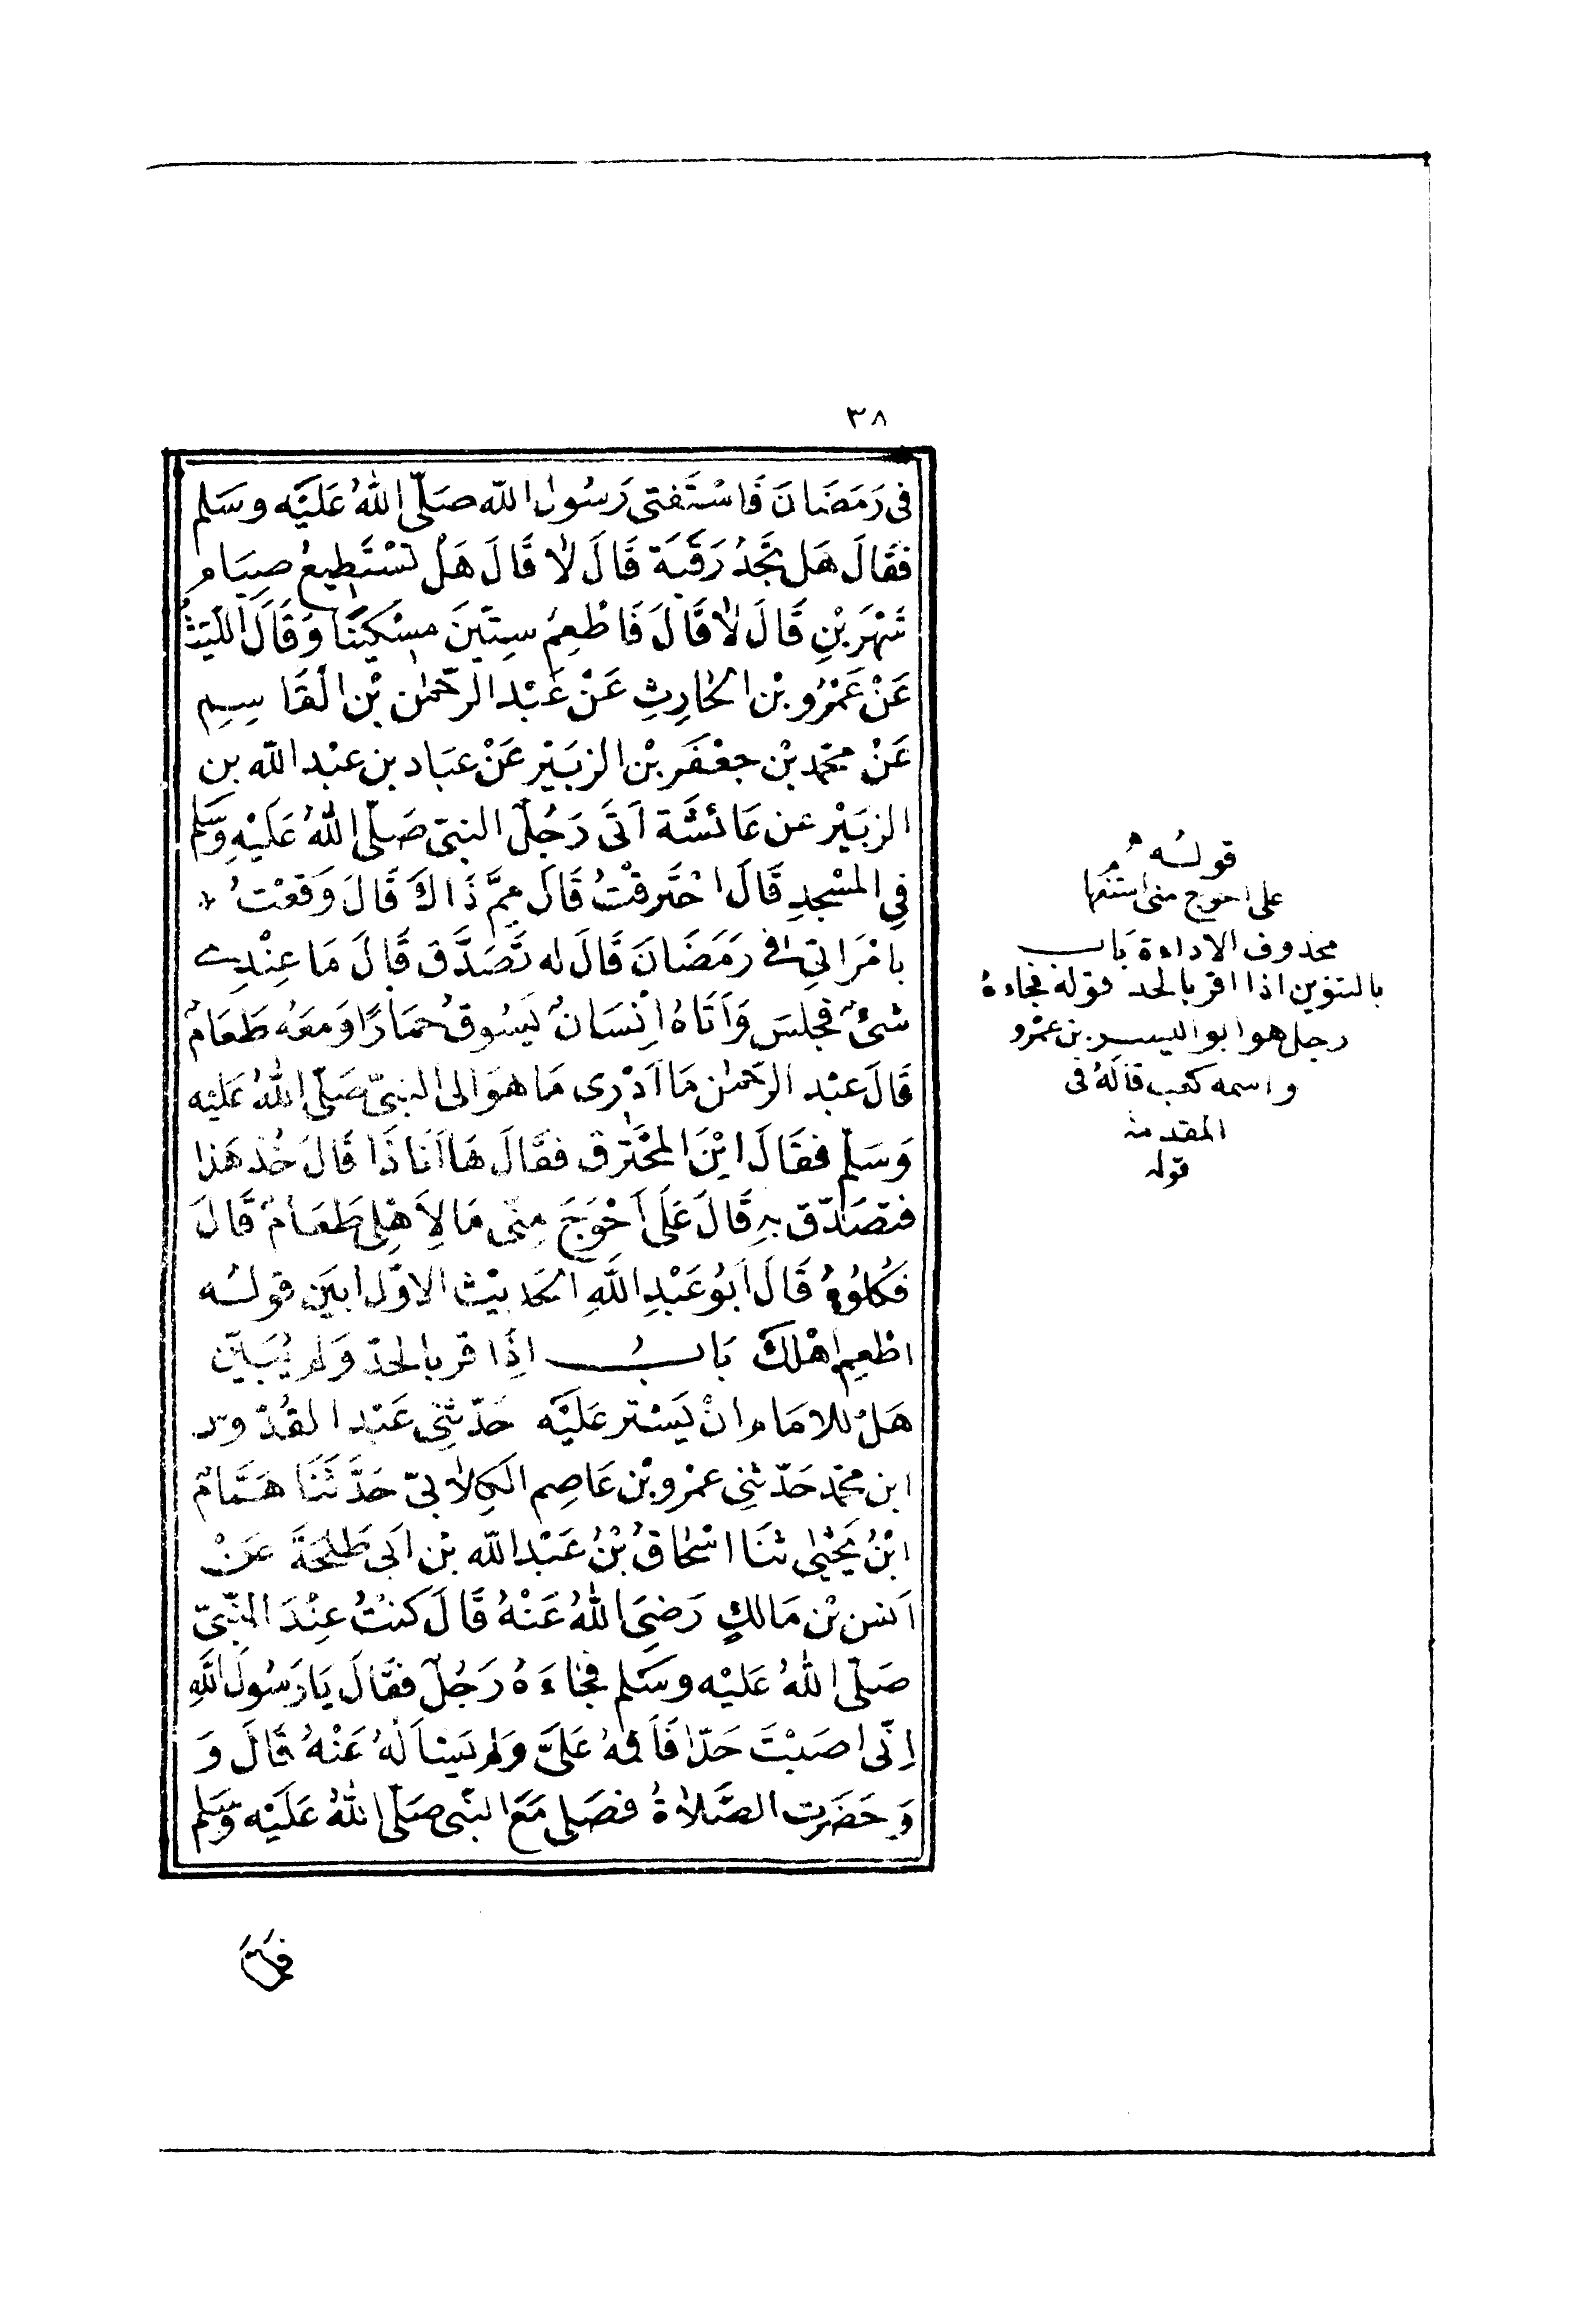 ٣٨
في رَمَضَانَ فَاسْتَفتى رَسُول الله صَلّى اللهُ عَلَيْه وسَلم
فقَالَ هَل تجَدُ رَقَبَة قَالَ لَا قَالَ هَلْ تسْتَطِيعُ صِيَام
شَهْرَيْنِ قَالَ لَا قَالَ فَاطْعِمْ سِتّينَ مِسْكِينًا وَقَالَ اللّيَثُ
عَنْ عَمْرو بْن الحَارِثِ عَنْ عَبْد الرّحمٰن بْن القَاسِمِ
عَنْ محمّد بْن جعْفَر بْن الزبَيْر عَنْ عبَاد بن عبْد اللّه بن
الزبَيْر عن عَائشَة اَتَى رَجُلٌ النبيّ صَلّى اللهُ عَلَيْهِ وَسَلم
فِي المسْجدِ قَالَ احْتَرقْتُ قَالَ مِمَّ ذَاكَ قَالَ وَقعْتُ
بامْرَاتِي في رَمَضَانَ قَالَ له تَصَدَّق قَالَ مَا عِنْدِي
شئٌ فجلسَ وَاَتَاهُ اِنْسَانٌ يَسُوقُ حمَارًا وَمعَهُ طَعَامٌ
قَالَ عبْد الرّحمٰن مَا اَدْرى مَا هوَ الى النبىّ صَلّى اللهُ عَليْه
وَسَلّم فقَالَ اَيْنَ المحْتَرق فقَالَ هَا اَنَا ذَا قَالَ خُذ هَذا
فتصَدّق بهِ قَالَ عَلَى اَحْوَجَ مِنّى مَا لِاَهْلِى طَعَامٌ قَالَ
فَكُلوُهُ قَالَ اَبُو عَبْدِ اللَّهِ الحَديْث الاوّل ابيَن قولُه
اطْعِم اهْلكَ بَابُ اِذَا قر بالحدّ وَلم يُبَيّن
هَلْ للامَام انْ يَسْتر عَلَيْه حَدّثنِي عَبْد القُدّوس
ابن محمّد حَدّثنِي عمْرو بْن عَاصِم الكِلاَبيّ حَدَّثنَا هَمَّامٌ
ابْنُ يَحْيٰى ثنَا اسْحَاقُ بْنُ عَبْد اللّه بْن اَبي طَلحَةَ عَنْ
اَنس بْن مَالكٍ رَضِيَ اللهُ عَنْهُ قَالَ كنتُ عِنْدَ النّبىّ
صَلّى اللهُ عَليْه وسَلم فجَاءَهُ رَجُلٌ فقَالَ يَا رَسُولَ اللَّهِ
اِنّى اصَبْتَ حَدّا فَاَقمْهُ عَلَىَّ وَلم يَسْاَلهُ عَنْهُ قَالَ وَ
وَحَضَرَت الصَّلَاةُ فصَلى مَعَ النّبى صَلّى اللهُ عَلَيْه وَسَلم
قولُه
على احوج منى استفها
محذوف الاداءة بَاب
بالتنوين اذا اقر بالحد قولهُ فجاءهُ
رجل هوا بو اليسر بن عمْرو
واسمه كعب قالَهُ في
المقدمة
قوله